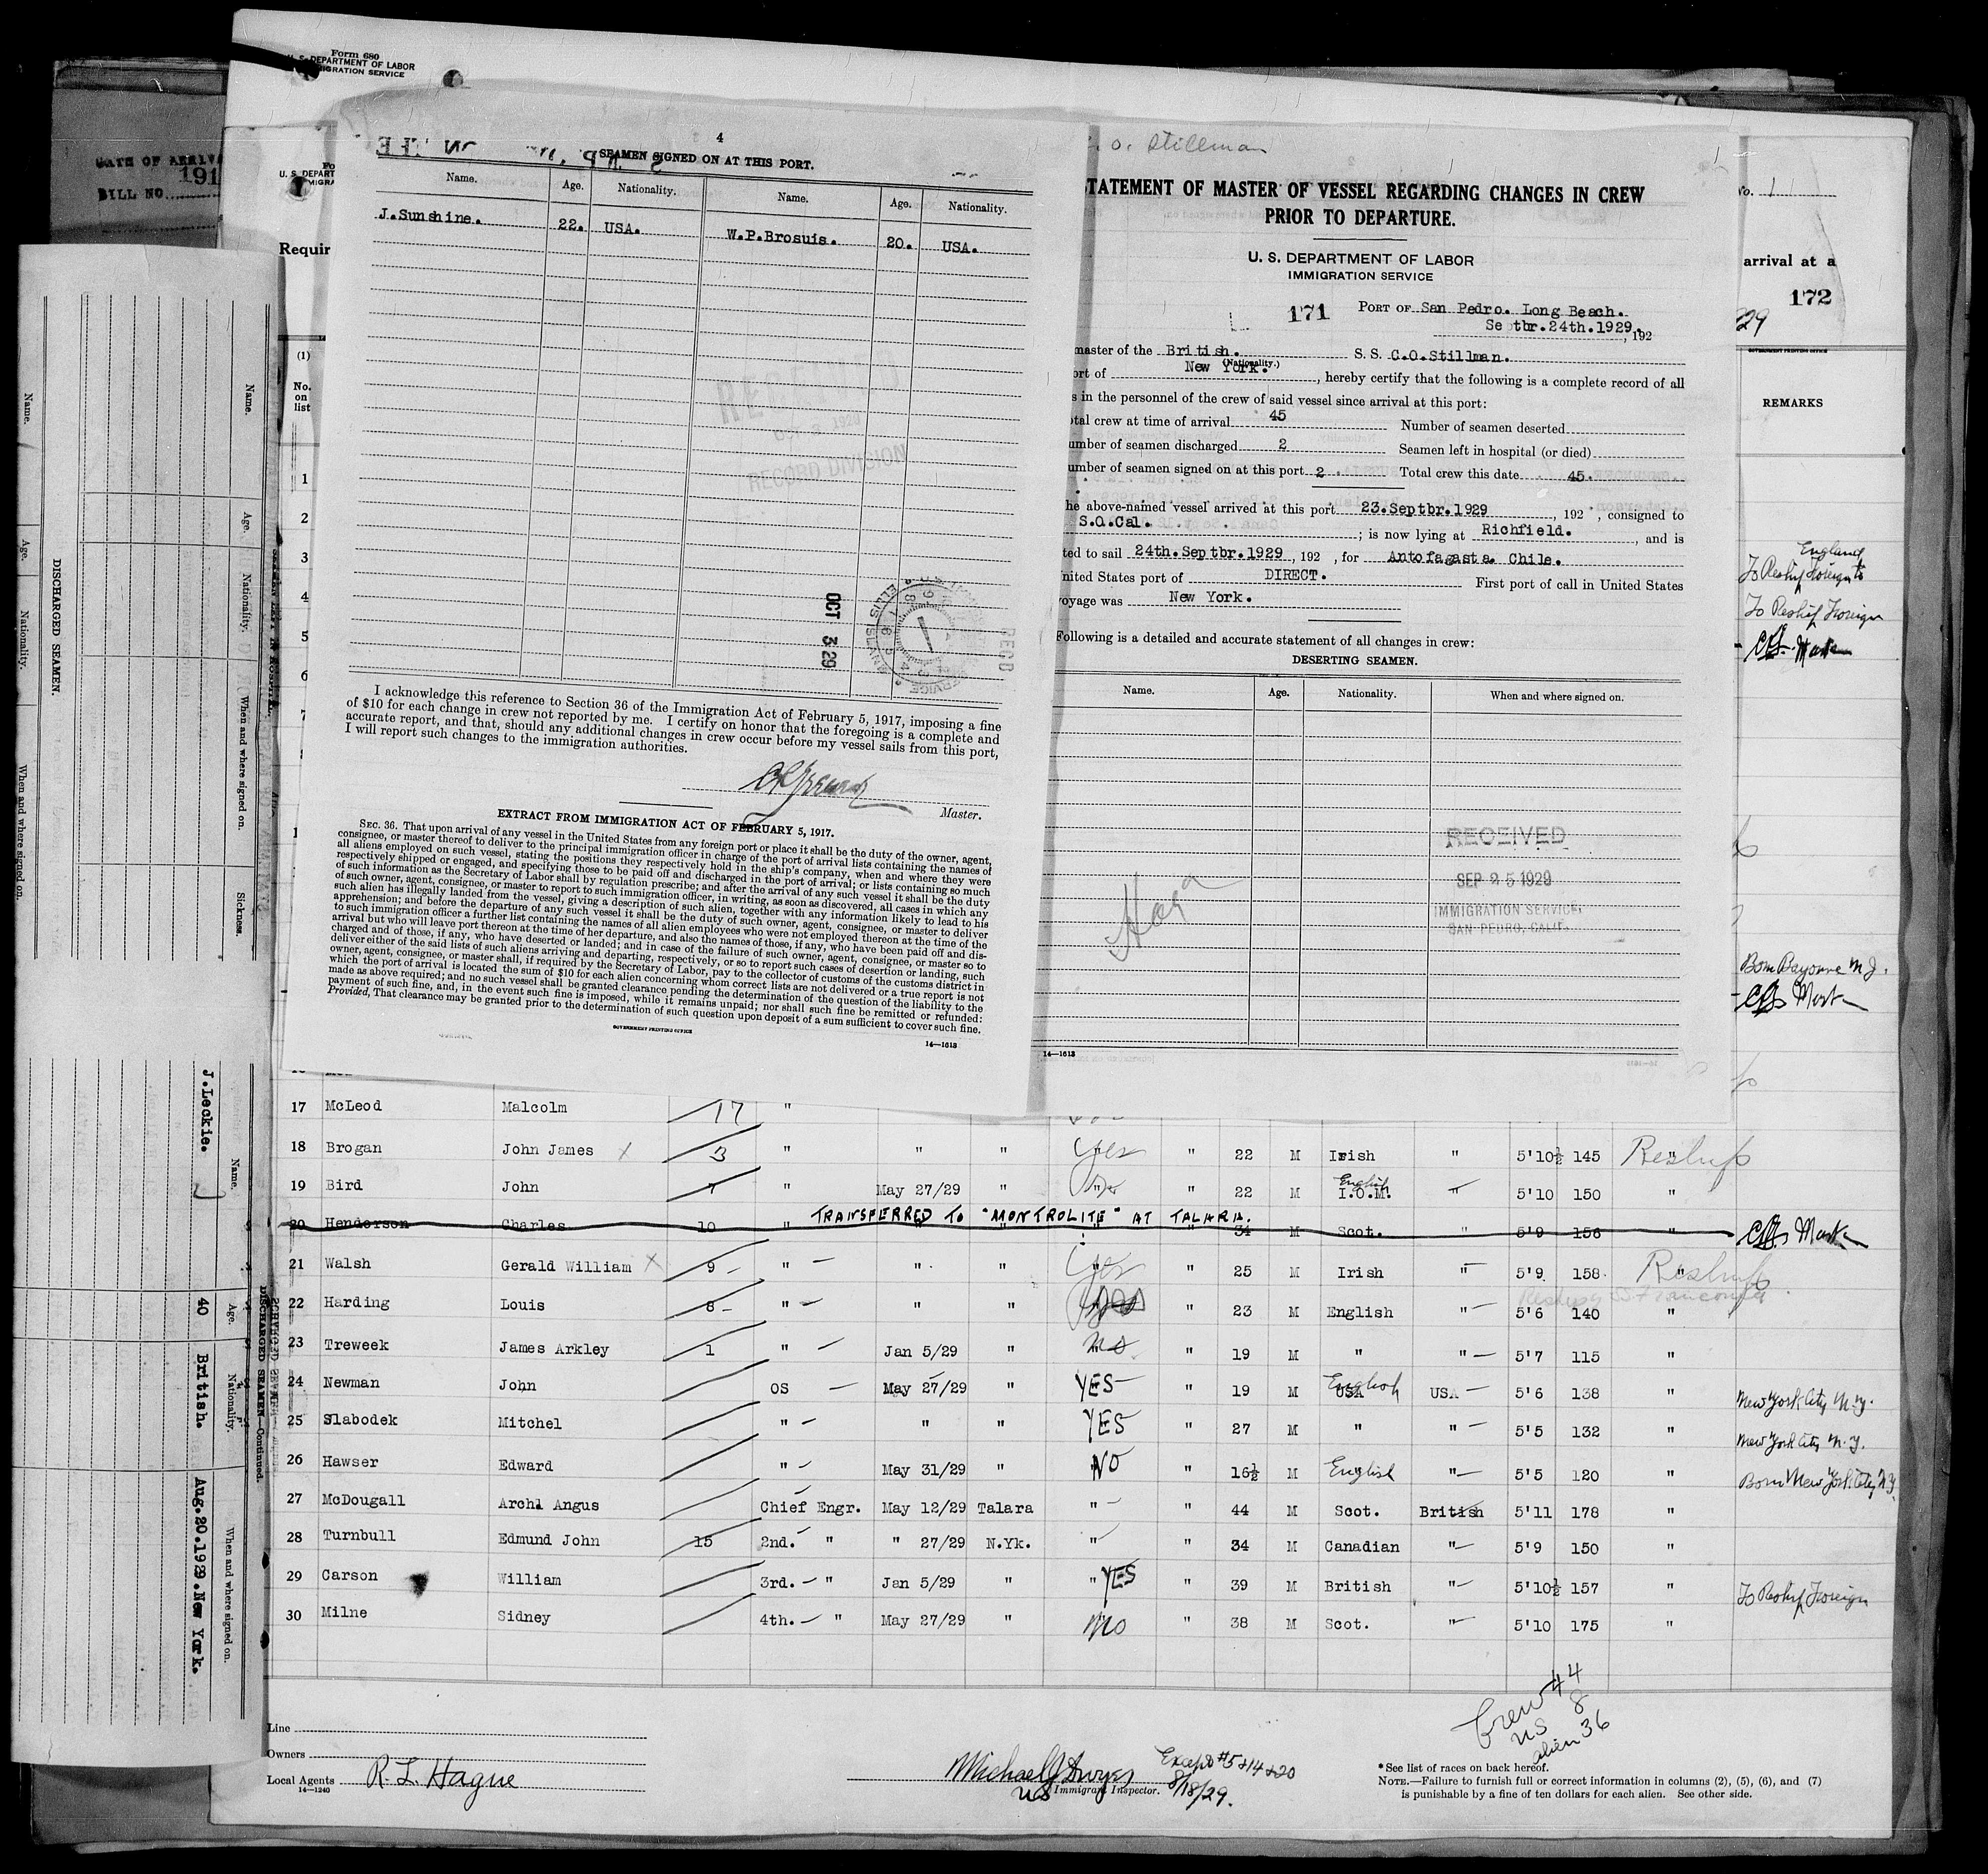 Form 680
U. S. DEPARTMENT OF LABOR
IMMIGRATION SERVICE
DATE OF ARRIVA
191
BILL NO.
U. S. DEPART
Requir
(1)
No.
on
list
1
2
3
4
5
6
4
SEAMEN SIGNED ON AT THIS PORT.
Name. Age. Nationality. Name. Age. Nationality.
J.Sunshine. 22. USA. W.P.Brosuis. 20. USA.
RECEIVED
OCT 3 1929
RECORD DIVISION
OCT 3 29
REC'D
ELLIS ISLAND
I acknowledge this reference to Section 36 of the Immigration Act of February 5, 1917, imposing a fine
of $10 for each change in crew not reported by me. I certify on honor that the foregoing is a complete and
accurate report, and that, should any additional changes in crew occur before my vessel sails from this port,
I will report such changes to the immigration authorities.
Master.
EXTRACT FROM IMMIGRATION ACT OF FEBRUARY 5, 1917.
SEC. 36. That upon arrival of any vessel in the United States from any foreign port or place it shall be the duty of the owner, agent,
consignee, or master thereof to deliver to the principal immigration officer in charge of the port of arrival lists containing the names of
all aliens employed on such vessel, stating the positions they respectively hold in the ship's company, when and where they were
respectively shipped or engaged, and specifying those to be paid off and discharged in the port of arrival; or lists containing so much
of such information as the Secretary of Labor shall by regulation prescribe; and after the arrival of any such vessel it shall be the duty
of such owner, agent, consignee, or master to report to such immigration officer, in writing, as soon as discovered, all cases in which any
such alien has illegally landed from the vessel, giving a description of such alien, together with any information likely to lead to his
apprehension; and before the departure of any such vessel it shall be the duty of such owner, agent, consignee, or master to deliver
to such immigration officer a further list containing the names of all alien employees who were not employed thereon at the time of the
arrival but who will leave port thereon at the time of her departure, and also the names of those, if any, who have been paid off and dis-
charged and of those, if any, who have deserted or landed; and in case of the failure of such owner, agent, consignee, or master so to
deliver either of the said lists of such aliens arriving and departing, respectively, or so to report such cases of desertion or landing, such
owner, agent, consignee, or master shall, if required by the Secretary of Labor, pay to the collector of customs of the customs district in
which the port of arrival is located the sum of $10 for each alien concerning whom correct lists are not delivered or a true report is not
made as above required; and no such vessel shall be granted clearance pending the determination of the question of the liability to the
payment of such fine, and, in the event such fine is imposed, while it remains unpaid; nor shall such fine be remitted or refunded:
Provided, That clearance may be granted prior to the determination of such question upon deposit of a sum sufficient to cover such fine.
GOVERNMENT PRINTING OFFICE
14—1613
. O. Stillman
STATEMENT OF MASTER OF VESSEL REGARDING CHANGES IN CREW
PRIOR TO DEPARTURE.
U. S. DEPARTMENT OF LABOR
IMMIGRATION SERVICE
171 PORT OF San Pedro. Long Beach.
Se tbr.24th.1929., 192
master of the British. S. S. C.O.Stillman.
(Nationality.)
ort of New York. , hereby certify that the following is a complete record of all
s in the personnel of the crew of said vessel since arrival at this port:
otal crew at time of arrival 45 Number of seamen deserted
umber of seamen discharged 2 Seamen left in hospital (or died)
umber of seamen signed on at this port 2 . Total crew this date 45.
he above-named vessel arrived at this port 23.Septbr.1929 , 192 , consigned to
S.O.Cal. ; is now lying at Richfield. , and is
ted to sail 24th.Septbr.1929 , 192 , for Antofagasta. Chile.
nited States port of DIRECT. First port of call in United States
oyage was New York.
Following is a detailed and accurate statement of all changes in crew:
DESERTING SEAMEN.
Name. Age. Nationality. When and where signed on.
RECEIVED
SEP 25 1929
IMMIGRATION SERVICE,
SAN PEDRO, CALIF.
14—1613
No. 1
arrival at a
172
29
GOVERNMENT PRINTING OFFICE
REMARKS
England
To Reship Foreign to
To Reship Foreign
Born Bayonne N.J.
Name. Age. Nationality. When and where signed on.
DISCHARGED SEAMEN.
Name. Age. Nationality. When and where signed on. Sickness.
J.Leckie. 40 British. Aug.20.1929.New York.
Name. Age. Nationality. When and where signed on.
DISCHARGED SEAMEN—Continued.
17 McLeod Malcolm 17 "
18 Brogan John James X 3 " " " yes " 22 M Irish " 5'10½ 145 " Reship
19 Bird John 7 " May 27/29 " " 22 M I.O.M. English " 5'10 150 "
TRANSFERRED TO "MONTROLITE" AT TALARA.
20 Henderson Charles 10 " " 34 M Scot. " 5'9 156 "
21 Walsh Gerald William X 9 " " " yes " 25 M Irish " 5'9 158 " Reship
22 Harding Louis 8 " " " " 23 M English " 5'6 140 "
23 Treweek James Arkley 1 " Jan 5/29 " no " 19 M " " 5'7 115 "
24 Newman John OS May 27/29 " YES " 19 M USA English USA 5'6 138 " New York City N.Y.
25 Slabodek Mitchel " " " YES " 27 M " " 5'5 132 " New York City N.Y.
26 Hawser Edward " May 31/29 " NO " 16½ M English " 5'5 120 " Born New York City N.Y.
27 McDougall Archl Angus Chief Engr. May 12/29 Talara " " 44 M Scot. British 5'11 178 "
28 Turnbull Edmund John 15 2nd. " " 27/29 N.Yk. " " 34 M Canadian " 5'9 150 "
29 Carson William 3rd. " Jan 5/29 " " YES " 39 M British " 5'10½ 157 " To Reship Foreign
30 Milne Sidney 4th. " May 27/29 " NO " 38 M Scot. " 5'10 175 "
Crew 44
US 8
alien 36
Line
Owners
Local Agents R. L. Hague
14—1240
Michael J Dwyer Except #5 & 14 & 20
US Immigrant Inspector. 8/18/29.
* See list of races on back hereof.
NOTE.—Failure to furnish full or correct information in columns (2), (5), (6), and (7)
is punishable by a fine of ten dollars for each alien. See other side.